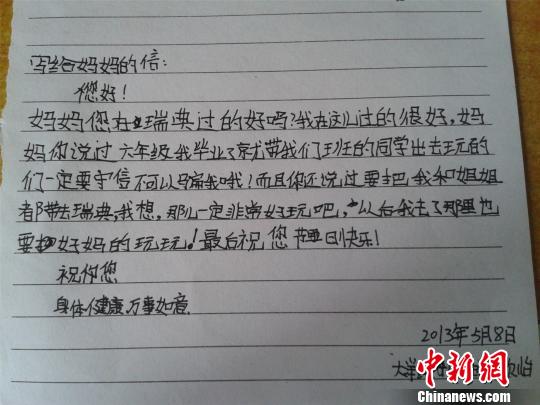 写给妈妈的信：
您好！
妈妈您在瑞典过的好吗？我在这儿过的很好，妈
妈你说过六年级我毕业了就带我们班的同学出去玩的
们一定要守信不可以骗我哦！而且你还说过要把我和姐姐
都带去瑞典我想，那儿一定非常好玩吧，以后我去了那里也
要好好妈的玩玩！最后祝您节日快乐！
祝你您
身体健康万事如意
2013年5月8日
大学
中新网
www.chinanews.com